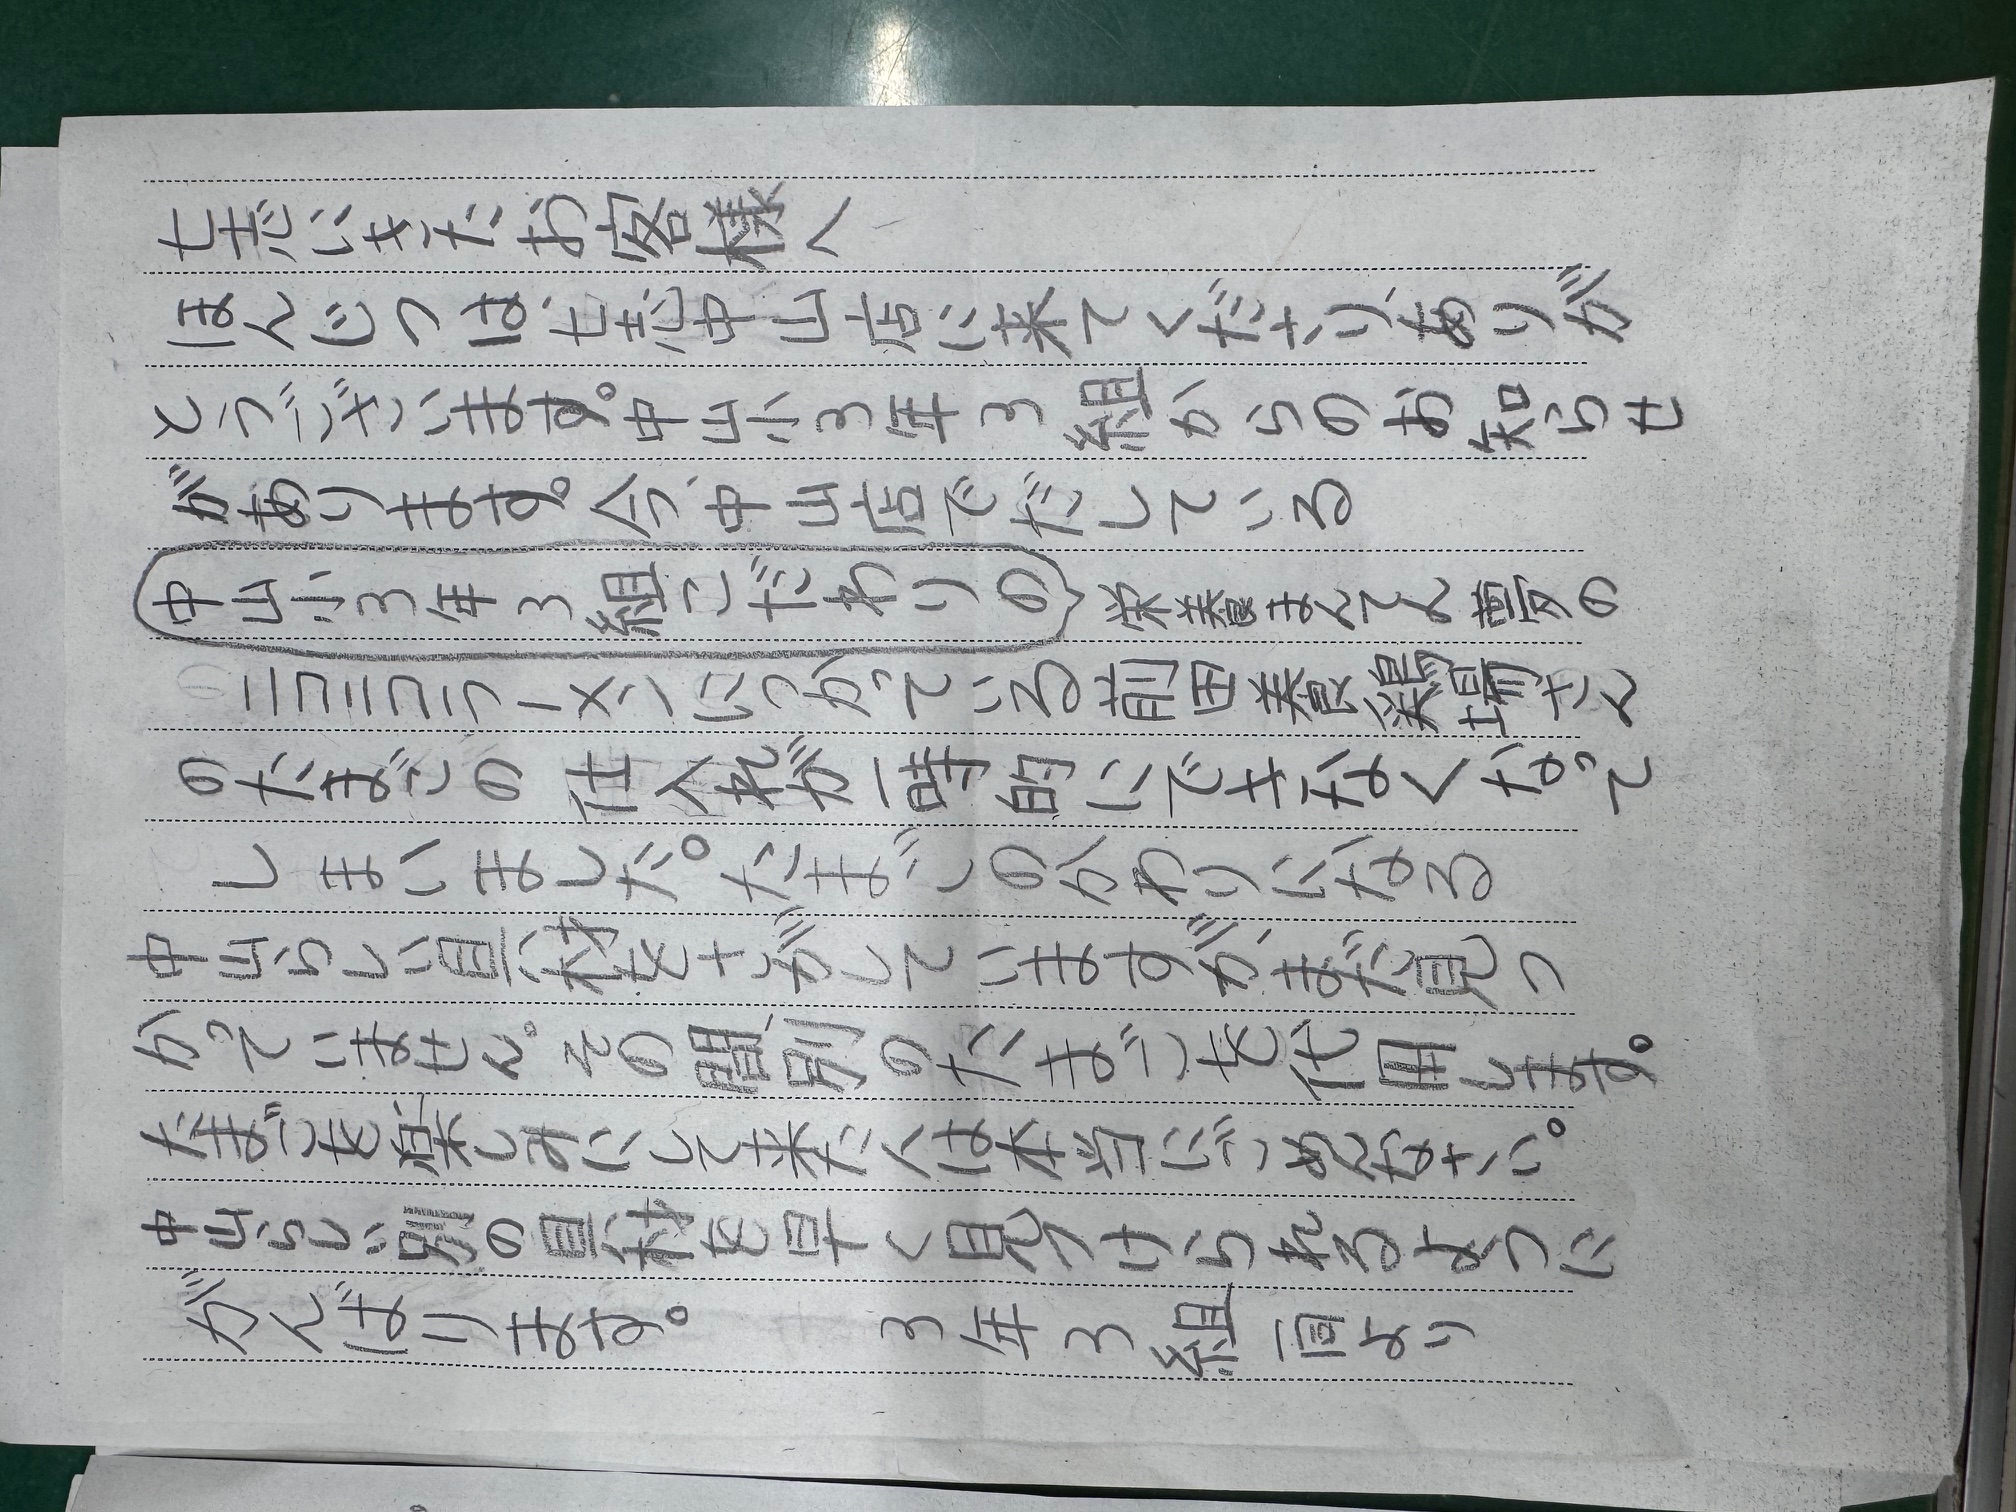 七志にきたお客様へ
ほんじつは、七志中山店に来てくださり、ありが
とうございます。中山小3年3組からのお知らせ
があります。今、中山店でだしている
中山小3年3組こだわりの栄養まんてん夢の
ニコニコラーメンにつかっている前田養鶏場さん
のたまごの仕入れが一時的にできなくなって
しまいました。たまごのかわりになる
中山らしい具材をさがしていますが、まだ見つ
かっていません。その間、別のたまごを代用します。
たまごを楽しみにして来た人は本当にごめんなさい。
中山らしい別の具材を早く見つけられるように
がんばります。 3年3組一同より